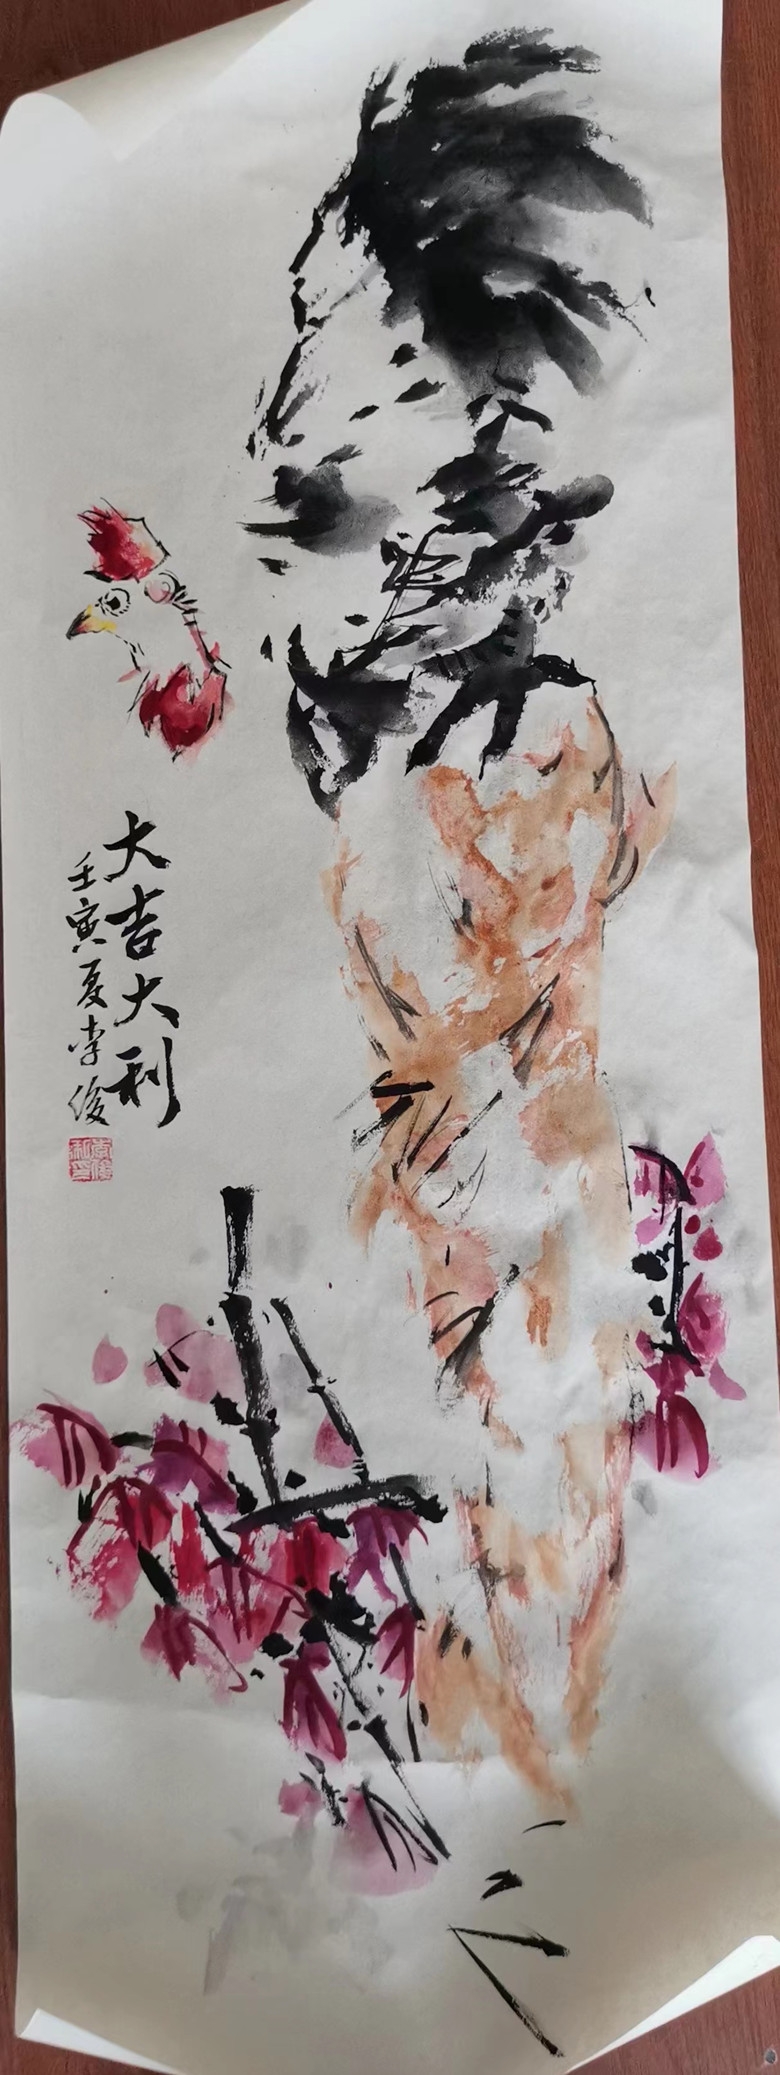 大吉大利
壬寅夏李俊